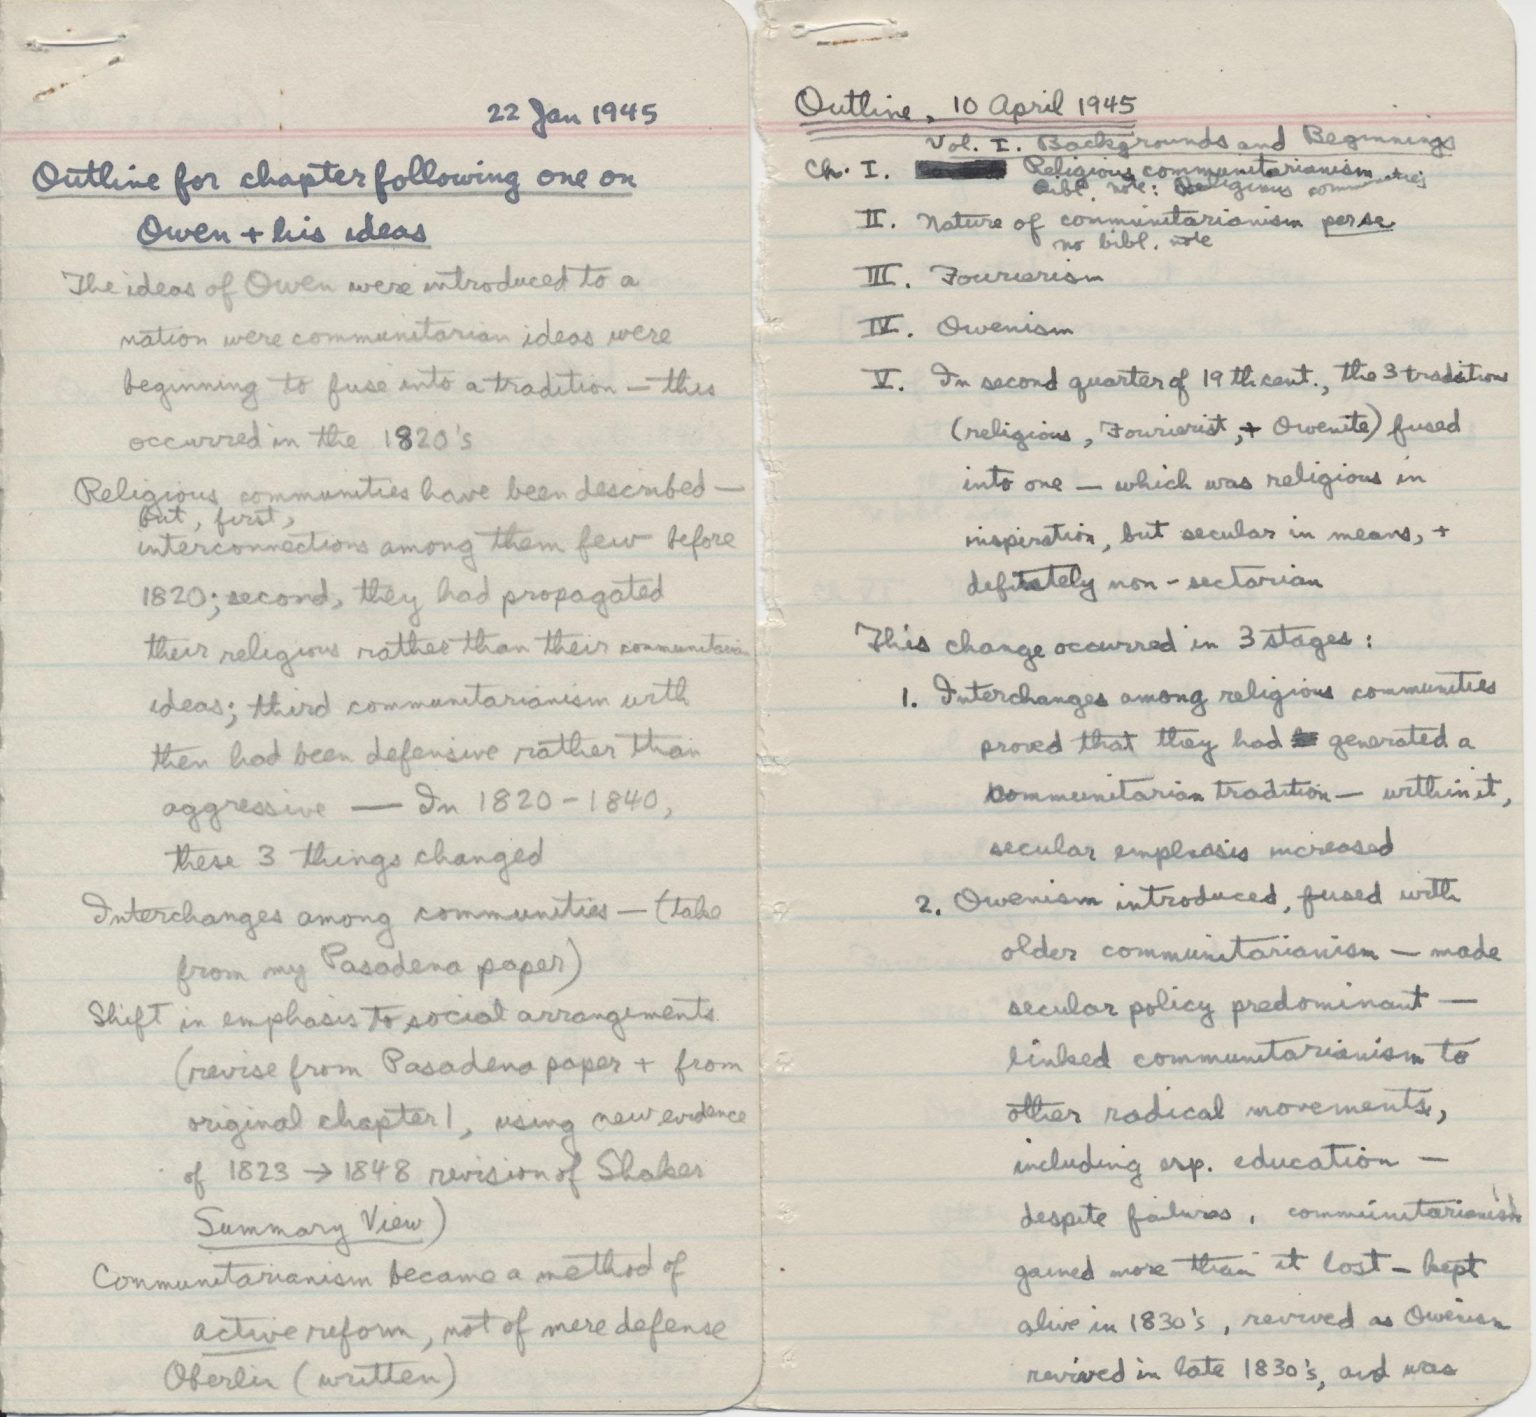 22 Jan 1945
Outline for chapter following one on
Owen + his ideas
The ideas of Owen were introduced to a
nation were communitarian ideas were
beginning to fuse into a tradition — this
occurred in the 1820's
Religious communities have been described —
but, first,
interconnections among them few before
1820; second, they had propagated
their religious rather than their communitarian
ideas; third communitarianism with
then had been defensive rather than
aggressive — In 1820-1840,
these 3 things changed
Interchanges among communities — (take
from my Pasadena paper)
Shift in emphasis to social arrangements
(revise from Pasadena paper + from
original chapter 1, using new evidence
of 1823 → 1848 revision of Shaker
Summary View)
Communitarianism became a method of
active reform, not of mere defense
Oberlin (written)
Outline, 10 April 1945
Vol. I. Backgrounds and Beginnings
Ch. I. Religious communitarianism
bibl. note: Religious communities
II. Nature of communitarianism per se
no bibl. note
III. Fourierism
IV. Owenism
V. In second quarter of 19th cent., the 3 traditions
(religious, Fourierist, + Owenite) fused
into one — which was religious in
inspiration, but secular in means, +
defitately non-sectarian
This change occurred in 3 stages:
1. Interchanges among religious communities
proved that they had generated a
communitarian tradition — within it,
secular emphasis increased
2. Owenism introduced, fused with
older communitarianism — made
secular policy predominant —
linked communitarianism to
other radical movements,
including esp. education —
despite failures, communitarianism
gained more than it lost — kept
alive in 1830's, revived as Owenism
revived in late 1830's, and was